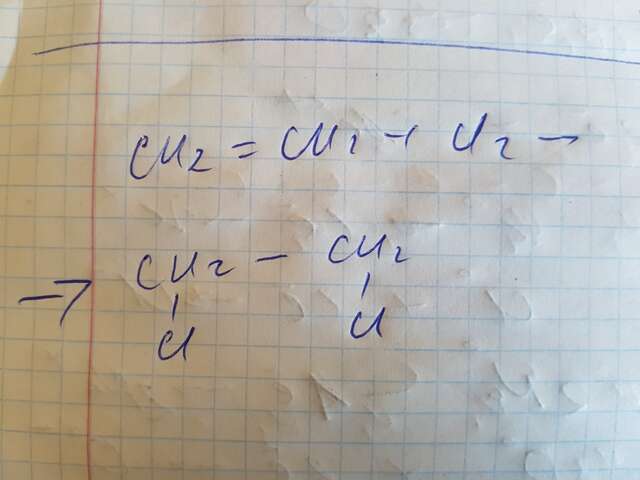 CH2 = CH2 + Cl2 →
→ CH2 - CH2
Cl Cl